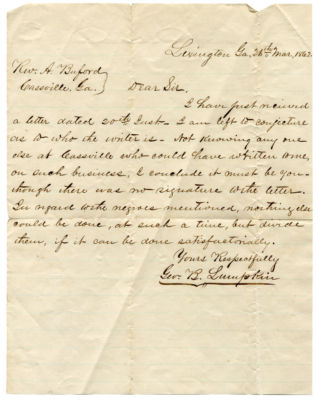 Livington Ga. 26th Mar, 1862.
Rev. A. Buford
Cassville, Ga.
Dear Sir,
I have just reciived
a letter dated 20th Inst. I am left to conjecture
as to who the writer is. Not knowing any one
else at Cassville who could have written to me,
on such business, I conclude it must be you -
though there was no signature to the letter.
In regard to the negroes mentioned, nothing else
could be done, at such a time, but divide
them, if it can be done satisfactorially.
Yours Respectfully
Geo. B. Lumpkin